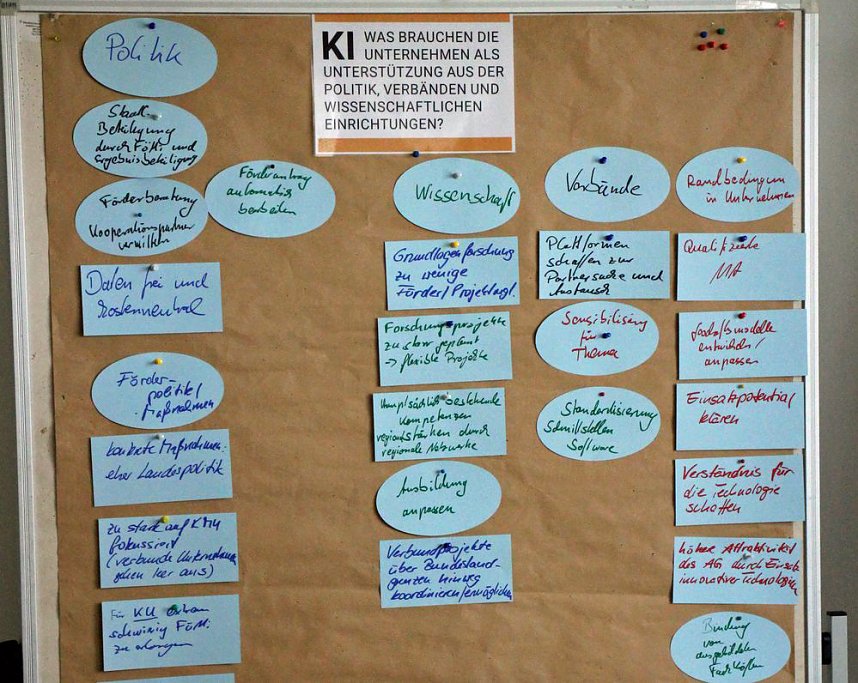 KI WAS BRAUCHEN DIE
UNTERNEHMEN ALS
UNTERSTÜTZUNG AUS DER
POLITIK, VERBÄNDEN UND
WISSENSCHAFTLICHEN
EINRICHTUNGEN?
Politik
Staatl.
Beteiligung
durch Fömi und
Ergebnisbeteiligung
Förderberatung
Kooperationspartner
vermitteln
Förderantrag
automatisch
bearbeiten
Daten frei und
kostenneutral
Förder-
politik/
Maßnahmen
konkrete Maßnahmen:
eher Landespolitik
zu stark auf KMU
fokussiert
(verbunde Unternehmen
gehen leer aus)
Für KU extrem
schwierig Fömi
zu erlangen
Wissenschaft
Grundlagenforschung
zu wenige
Förder/Projektmgl.
Forschungsprojekte
zu starr geplant
→ flexible Projekte
Hauptsächlich bestehende
Kompetenzen
regional stärken durch
regionale Netzwerke
Ausbildung
anpassen
Verbundprojekte
über Bundesland-
grenzen hinweg
koordinieren/ermöglichen
Verbünde
Plattformen
schaffen zur
Partnersuche und
Austausch
Sensibilisierung
für
Thema
Standardisierung
Schnittstellen
Software
Randbedingungen
in Unternehmen
Qualifizierte
MA
Geschäftsmodelle
entwickeln/
anpassen
Einsatzpotential
klären
Verständnis für
die Technologie
schaffen
höhere Attraktivität
des AG durch Einsatz
innovativer Technologien
Bindung
von
ausgebildeten
Fachkräften